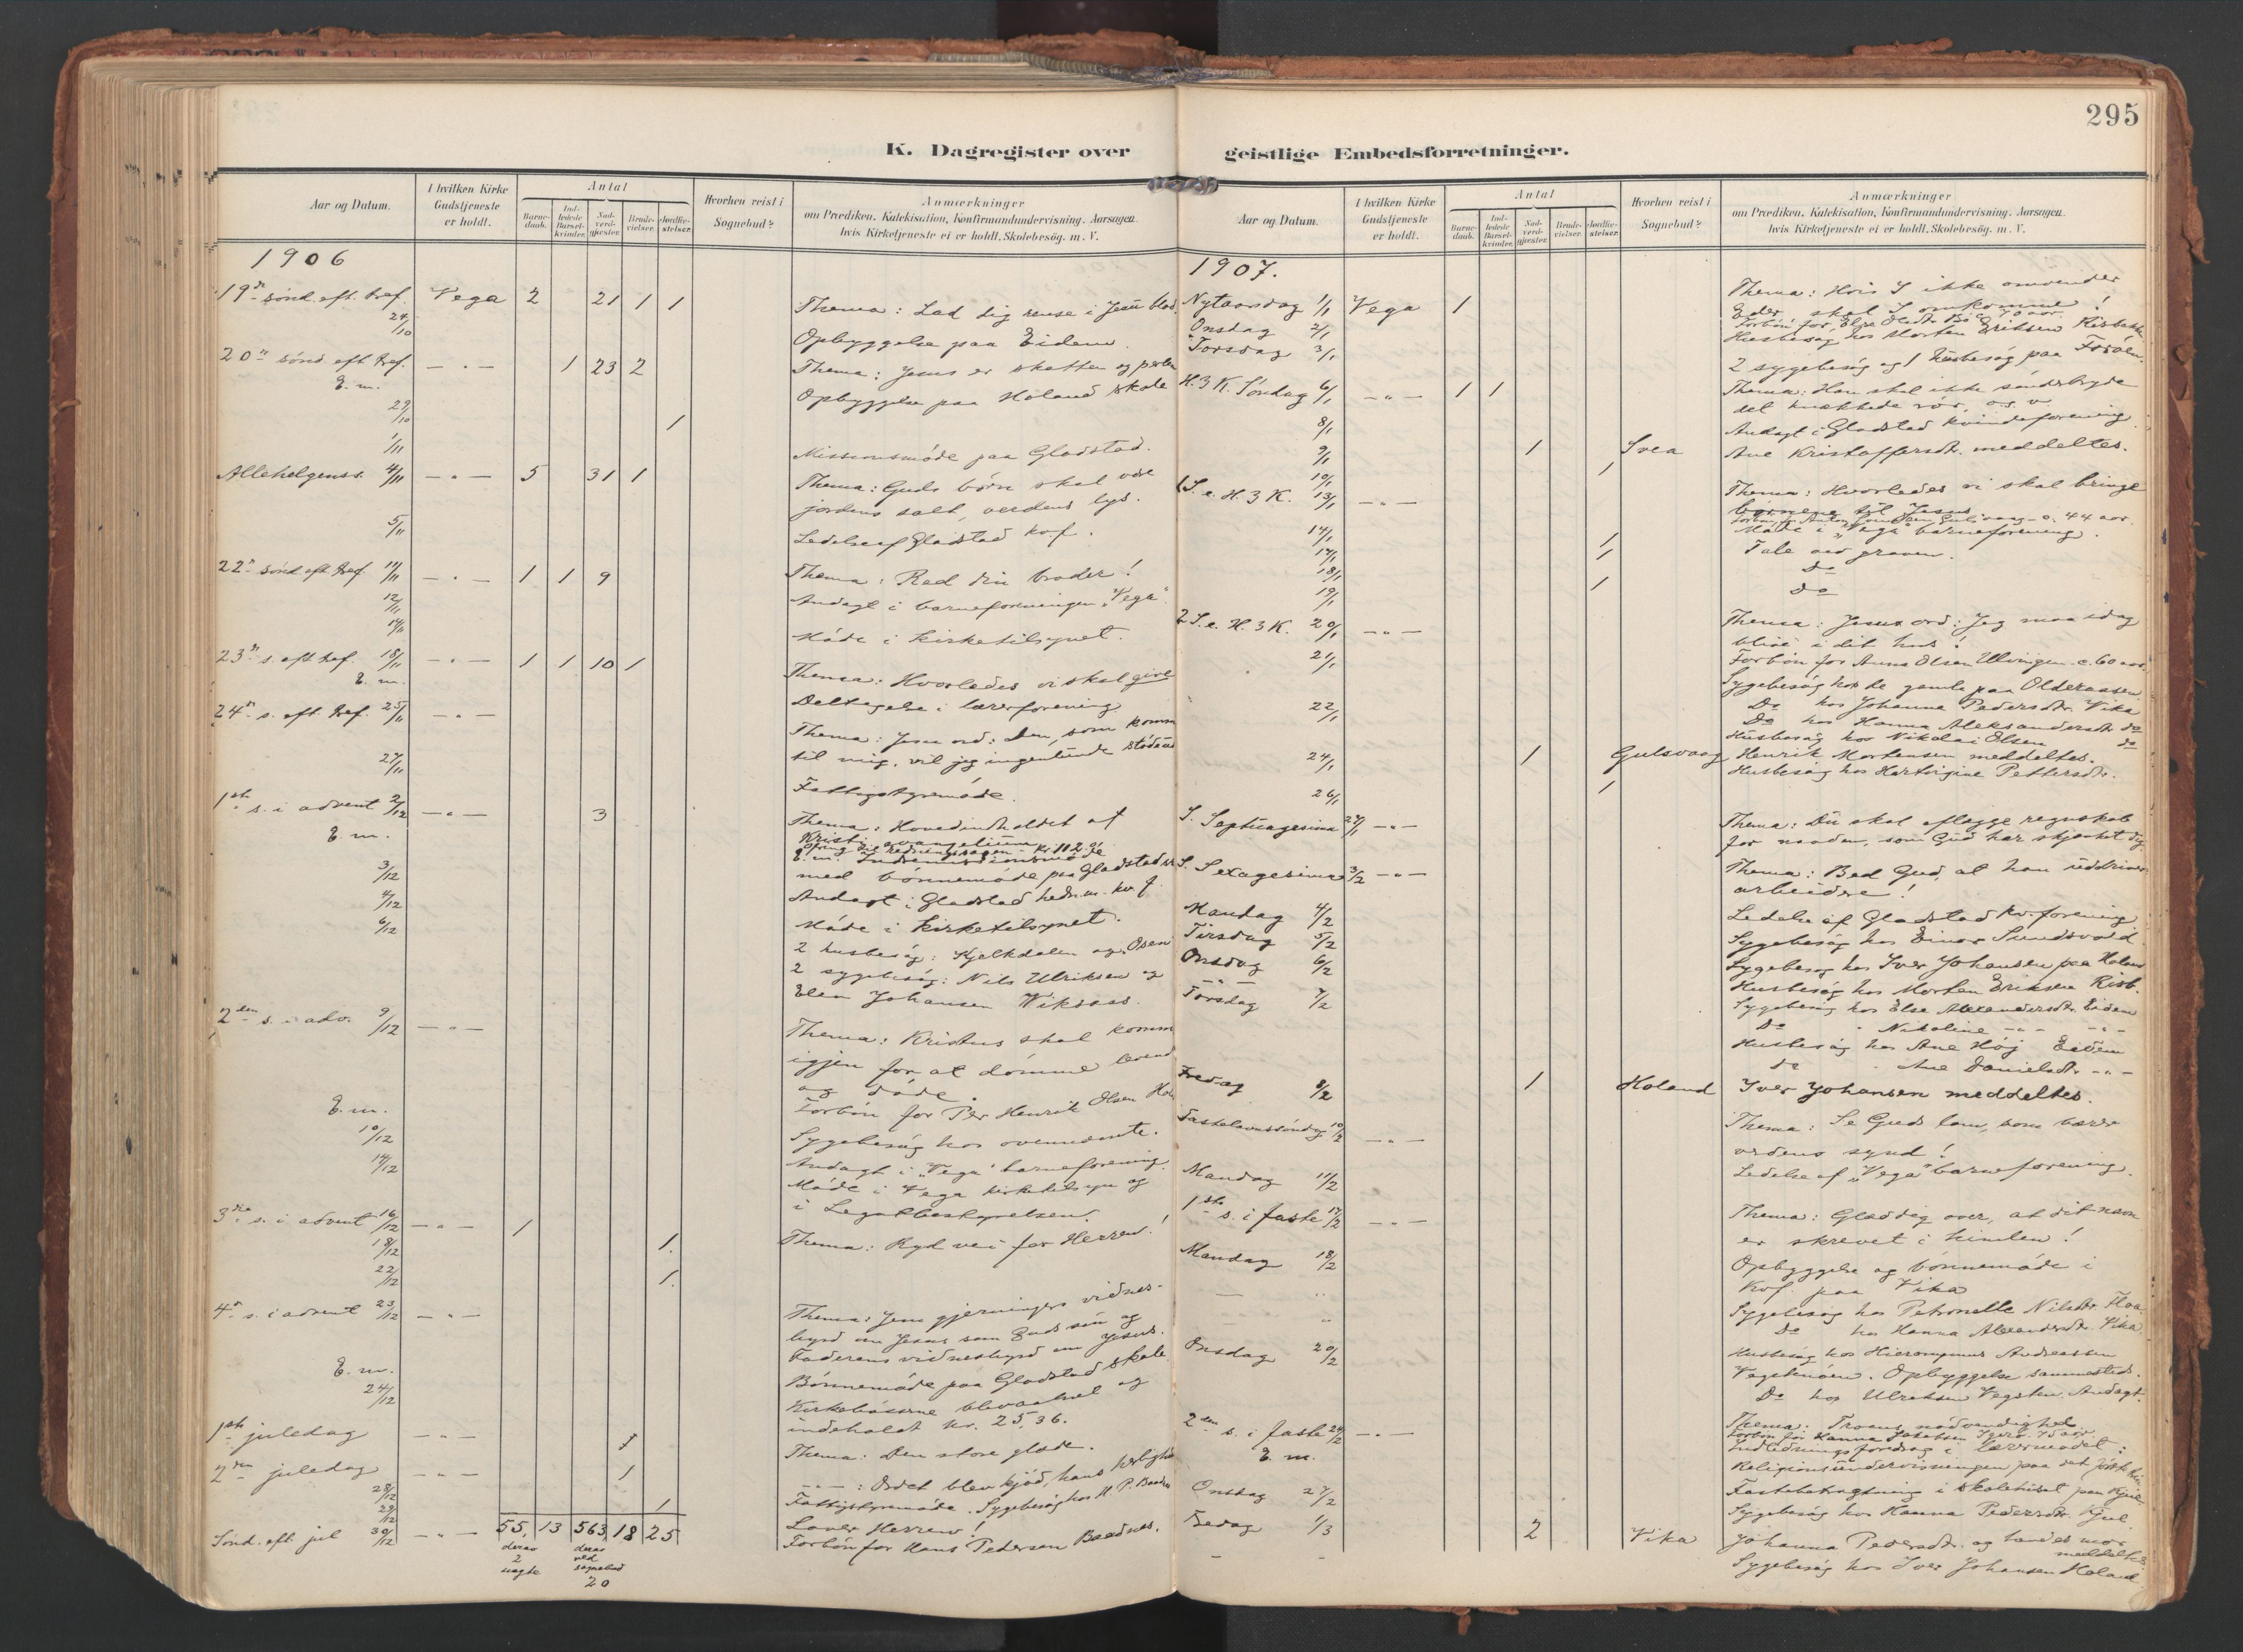 295
K. Dagregister over geistlige Embedsforretninger.
Aar og Datum.
I hvilken Kirke Gudstjeneste er holdt.
Antal
Barne-daab.
Ind-ledede Barsel-kvinder.
Nad-verd-gjæster.
Brude-vielser.
Jordfæ-stelser.
Hvorhen reist i Sognebud?
Anmærkninger
om Prædiken, Katekisation, Konfirmandundervisning. Aarsagen,
hvis Kirketjeneste ei er holdt. Skolebesög. m. V.
1906
19de sönd. eft. tref. Vega 2 21 1 1 Thema: Lad dig rense i Jesu blod.
24/10 Opbyggelse paa Eidem.
20de sönd eft tref. — " — 1 23 2 Thema: Jesus er skatten og perlen
E. m. Opbyggelse paa Holand skole
29/10 1
1/11 Missionsmöde paa Gladstad.
Allehelgenss. 4/11 — " — 5 31 1 Thema: Guds börn skal være
jordens salt, verdens lys.
5/11 Ledelse af Gladstad kvf.
22de sönd eft tref. 11/11 — " — 1 1 9 Thema: Red din broder!
12/11 Andagt i barneforeningen "Vega".
14/11 Möde i kirketilsynet.
23de s. eft tref. 18/11 — " — 1 1 10 1 Thema: Hvorledes vi skal give
E. m. Deltagelse i lærerforening
24de s. eft. tref. 25/11 — " — Thema: Jesu ord: Den, som komm
til mig, vil jeg ingenlunde stöde ud
27/11 Fattigstyremöde.
1ste s. i advent 2/12 — " — 3 Thema: Hovedindholdet af
Kristi evangelium
E. m. Indremissionsmöde
med bönnemöde paa Gladstad
3/12 Andagt i Gladstad hedn.m. kv. f.
4/12 Möde i kirketilsynet.
6/12 2 husbesög: Kjelkdalen og Osen
2 sygebesög: Nils Ulriksen og
Elen Johansen Viksaas.
2den s. i adv. 9/12 — " — Thema: Kristus skal komm
igjen for at dömme levend
og döde.
Forbön for Per Henrik Olsen Hol
E. m. Sygebesög hos ovennævnte.
10/12 Andagt i "Vega" barneforening.
14/12 Möde i Vega kirketilsyn og
i Legatbestyrelsen.
3die s. i advent 16/12 — " — 1 Thema: Ryd vei for Herren!
18/12 1.
22/12 1.
4de s. i advent 23/12 — " — Thema: Jesu gjerningers vidnes-
byrd om Jesus som Guds sön og
Faderens vidnesbyrd om Jesus.
E. m. Bönnemöde paa Gladstad skole
24/12 Kirkebössene blev aabnet og
indeholdt kr. 25,36.
1ste juledag — " — 1 Thema: Den store glæde.
2den juledag — " — 1 — " — : Ordet blev kjöd, hans herlighed
28/12 Fattigstyremöde. Sygebesög hos H. P. Baadsn
29/12 1
Sönd. eft. jul 30/12 — " — 55, 13 563, 18 25 Lover Herren!
Forbön for Hans Pedersen Baadsnes.
deraf 2 uægte
deraf ved sognebud 20
Aar og Datum.
I hvilken Kirke Gudstjeneste er holdt.
Antal
Barne-daab.
Ind-ledede Barsel-kvinder.
Nad-verd-gjæster.
Brude-vielser.
Jordfæ-stelser.
Hvorhen reist i Sognebud?
Anmærkninger
om Prædiken, Katekisation, Konfirmandundervisning. Aarsagen,
hvis Kirketjeneste ei er holdt. Skolebesög. m. V.
1907.
Nytaarsdag 1/1 Vega 1 Thema: Hvis I ikke omvender
Eder, skal I omkomme!
Onsdag 2/1 Husbesög hos Morten Eriksen Risbakk
Torsdag 3/1 2 sygebesög og 1 husbesög paa
H. 3 K. Söndag 6/1 — " — 1 1 Thema: Han skal ikke sönderbryde
det knækkede rör, o. s. v.
8/1 Andagt i Gladstad kvindeforening
9/1 1 Svea Ane Kristoffersdtr. meddeltes.
10/1 1
1 S. e. H. 3 K. 13/1 — " — Thema: Hvorledes vi skal bringe
börnene til Jesus
14/1 Möde i "Vega" barneforening.
17/1 1 Tale ved graven.
18/1 1 do
19/1 1 do
2 S. e. H. 3 K. 20/1 — " — Thema: Jesus ord: Jeg maa idag
blive i dit hus!
Forbön for Anna Olsen Ulvingen c. 60 aar.
21/1 Sygebesög hos de gamle paa Olderaasen
22/1 Do hos Johanna Pedersdtr. Vika
Do hos Hanna Aleksandersdtr. do
Husbesög hos Nikolai Olsen do
24/1 1 Gulsvaag Henrik Mortensen meddeltes.
Husbesög hos Hartvigine Pettersdtr.
26/1 1
S. Septuagesima 27/1 — " — Thema: Du skal aflægge regnskab
for naaden, som Gud har skjænket dig
S. Sexagesima 3/2 — " — Thema: Bed Gud, at han uddriver
arbeidere!
Mandag 4/2 Ledelse af Gladstad kv.forening
Tirsdag 5/2 Sygebesög hos Einar Sundsvold
Onsdag 6/2 Sygebesög hos Iver Johansen paa Holand
— " — Husbesög hos Morten Eriksen Risb.
Torsdag 7/2 Sygebesög hos Else Alexandersdtr. Eidem
Do " Nikoline — " — — " —
Husbesög hos Ane Höj Eidem
do " Ane Danielsdtr. — " —
Fredag 8/2 1 Holand Iver Johansen meddeltes.
Fastelavnssöndag 10/2 — " — Thema: Se Guds lam, som bærer
verdens synd!
Mandag 11/2 Ledelse af "Vega" barneforening.
1ste s. i faste 17/2 — " — Thema: Glæd dig over, at dit navn
er skrevet i himlen!
Mandag 18/2 Opbyggelse og bönnemöde i
Kvf. paa Vika
— " Sygebesög hos Petronelle Nilsdtr. Floa
" Do hos Hanna Alexandersdtr. Vika
Onsdag 20/2 Husbesög hos Hieronymus Andreassen
Vegstenöen. Opbyggelse sammesteds.
Do hos Ulriksen Vegsten. Andagt.
2den s. i faste 24/2 — " — Thema: Troens nödvendighed.
E. m. Indledningsforedrag i lærermödet:
Religionsundervisningen paa det
Onsdag 27/2 Fastebetragtning i skolehuset paa Kjul
Sygebesög hos Hanna Pedersdtr. Kjul.
Fredag 1/3 2 Vika Johanna Pedersdtr. og hendes mor
meddeltes
— — Sygebesög hos Iver Johansen Holand